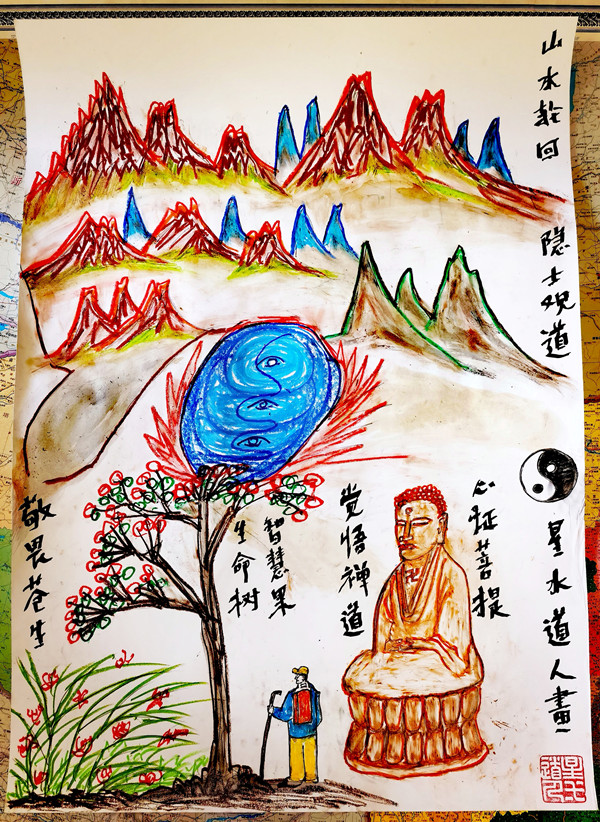 山水
隐士观道
星水道人畫
心证菩提
觉悟禅道
智慧果
生命树
敬畏苍生